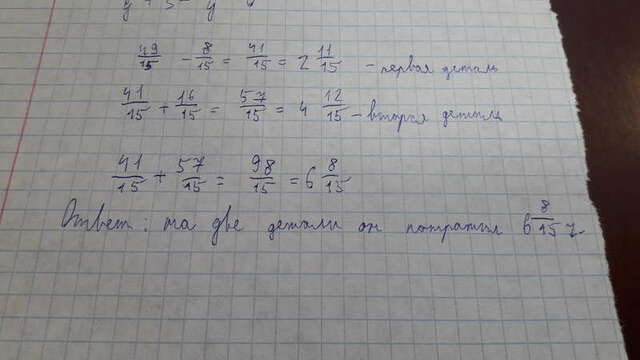 49/15 - 8/15 = 41/15 = 2 11/15 - первая деталь
41/15 + 16/15 = 57/15 = 4 12/15 - вторая деталь
41/15 + 57/15 = 98/15 = 6 8/15
Ответ: на две детали он потратил 6 8/15 ч.